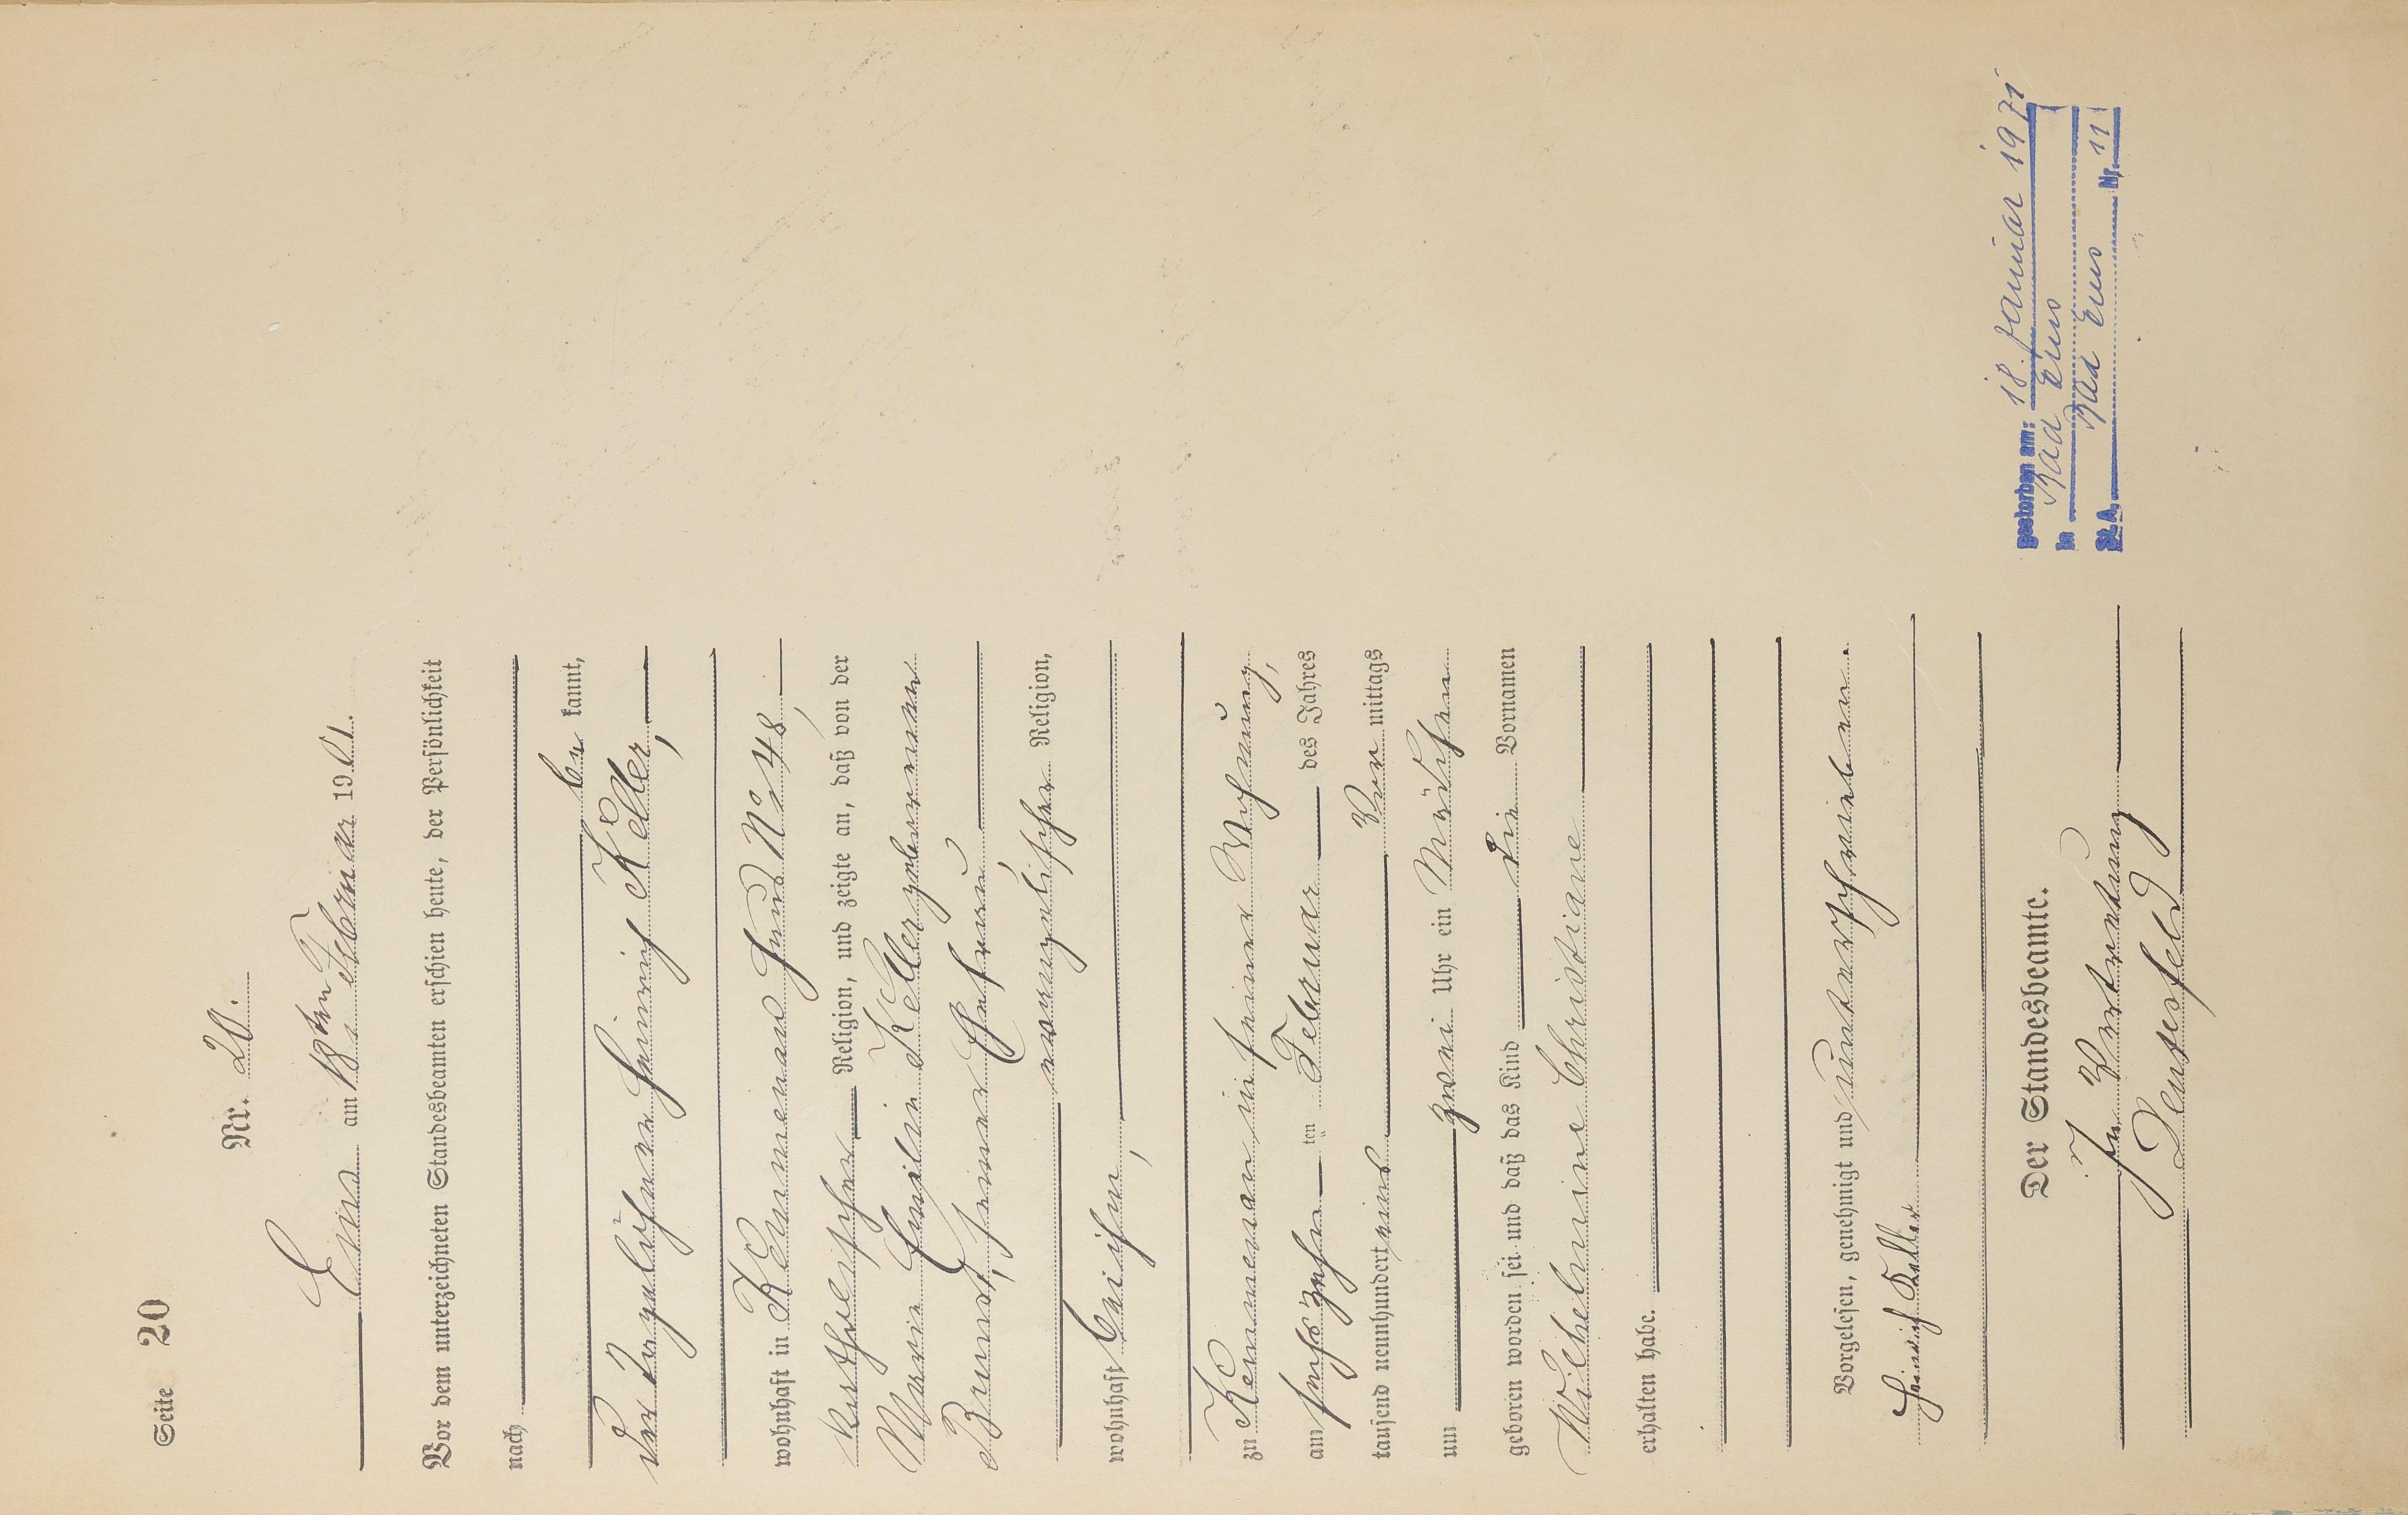 Seite 20
Nr. 20.
Ems am 18ten Februar 1901.
Vor dem unterzeichneten Standesbeamten erschien heute, der Persönlichkeit
nach
be kannt,
der Taglöhner Heinrich Keller,
wohnhaft in Kemmenau Haus No 48,
katholischer Religion, und zeigte an, daß von der
Marie Emilie Keller geborenen
Brund, seiner Ehefrau,
evangelischer Religion,
wohnhaft bei ihm,
zu Kemmenau in seiner Wohnung,
am sechszehn ten Februar des Jahres
tausend neunhundert eins Vor mittags
um zwei Uhr ein Mädchen
geboren worden sei und daß das Kind die Vornamen
Wilhelmine Christiane
erhalten habe.
Vorgelesen, genehmigt und unterschrieben.
Heinrich Keller
Der Standesbeamte.
In Vertretung
gestorben am: 18. Januar 1971
in Bad Ems
St.A. Bad Ems Nr. 11